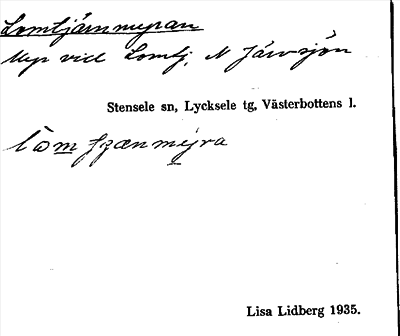 Lomtjärnmyran
Myr vid Lomtj. N Järvsjön
Stensele sn, Lycksele tg, Västerbottens l.
Lisa Lidberg 1935.